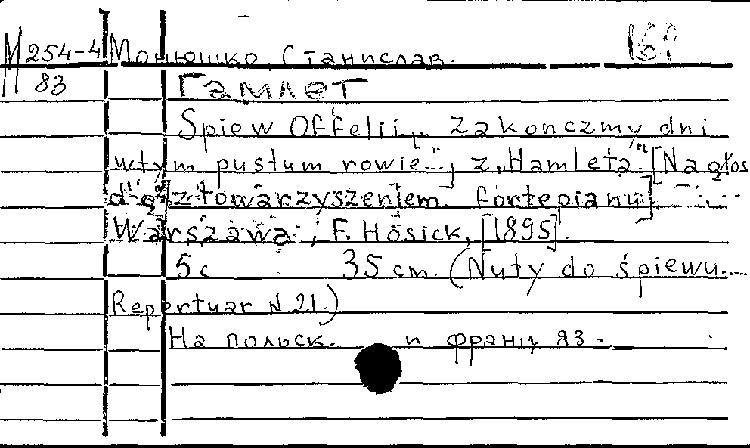 М 254-4 Монюшко, Станислав.
83 Гамлет
Spiew Offelii „Zakonczmy dni
w tym pustum rowie..", z „Hamleta" [Na głos
z towarzyszeniem fortepianu]
Warszawa, F. Hösick, [1895].
5 c 35 cm. (Nuty do śpiewu...
Repertuar N 21.)
На польск. и франц яз.